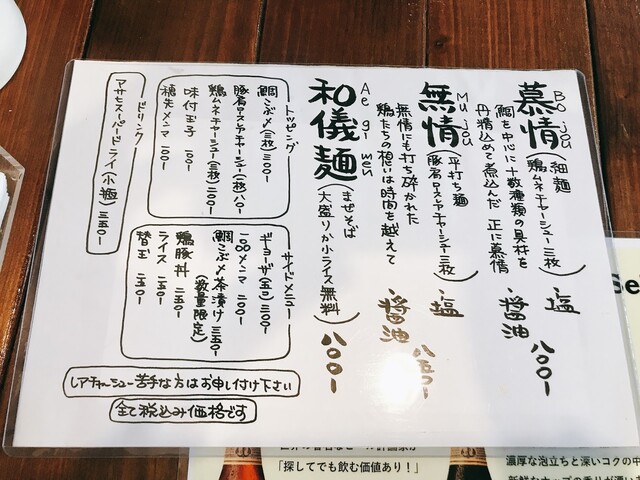 慕情
Bojou
(細麺
鶏ムネチャーシュー三枚)
鯛を中心に十数種類の具材を
丹精込めて煮込んだ 正に慕情
・塩
・醤油
八〇〇-
無情
Mujou
(平打ち麺
豚肩ロースレアチャーシュー三枚)
無情にも打ち砕かれた
鶏たちの想いは時間を越えて
・塩
・醤油
八五〇-
和儀麺
Aegi men
まぜそば
(大盛りか小ライス無料)
八〇〇-
トッピング
鯛こぶ〆(三枚)三〇〇-
豚肩ロースレアチャーシュー(一枚)八〇-
鶏ムネチャーシュー(三枚)二〇〇-
味付玉子 一〇〇-
穂先メンマ 一〇〇-
サイドメニュー
ギョーザ(五コ)三〇〇-
100%メンマ 二〇〇-
鯛こぶ〆茶漬け 三五〇-
(数量限定)
鶏豚丼 二五〇-
ライス 一五〇-
替玉 一五〇-
ドリンク
アサヒスーパードライ(小瓶)三五〇-
レアチャーシュー苦手な方はお申し付け下さい
全て税込み価格です
Se
「探してでも飲む価値あり!」
濃厚な泡立ちと深いコクの中